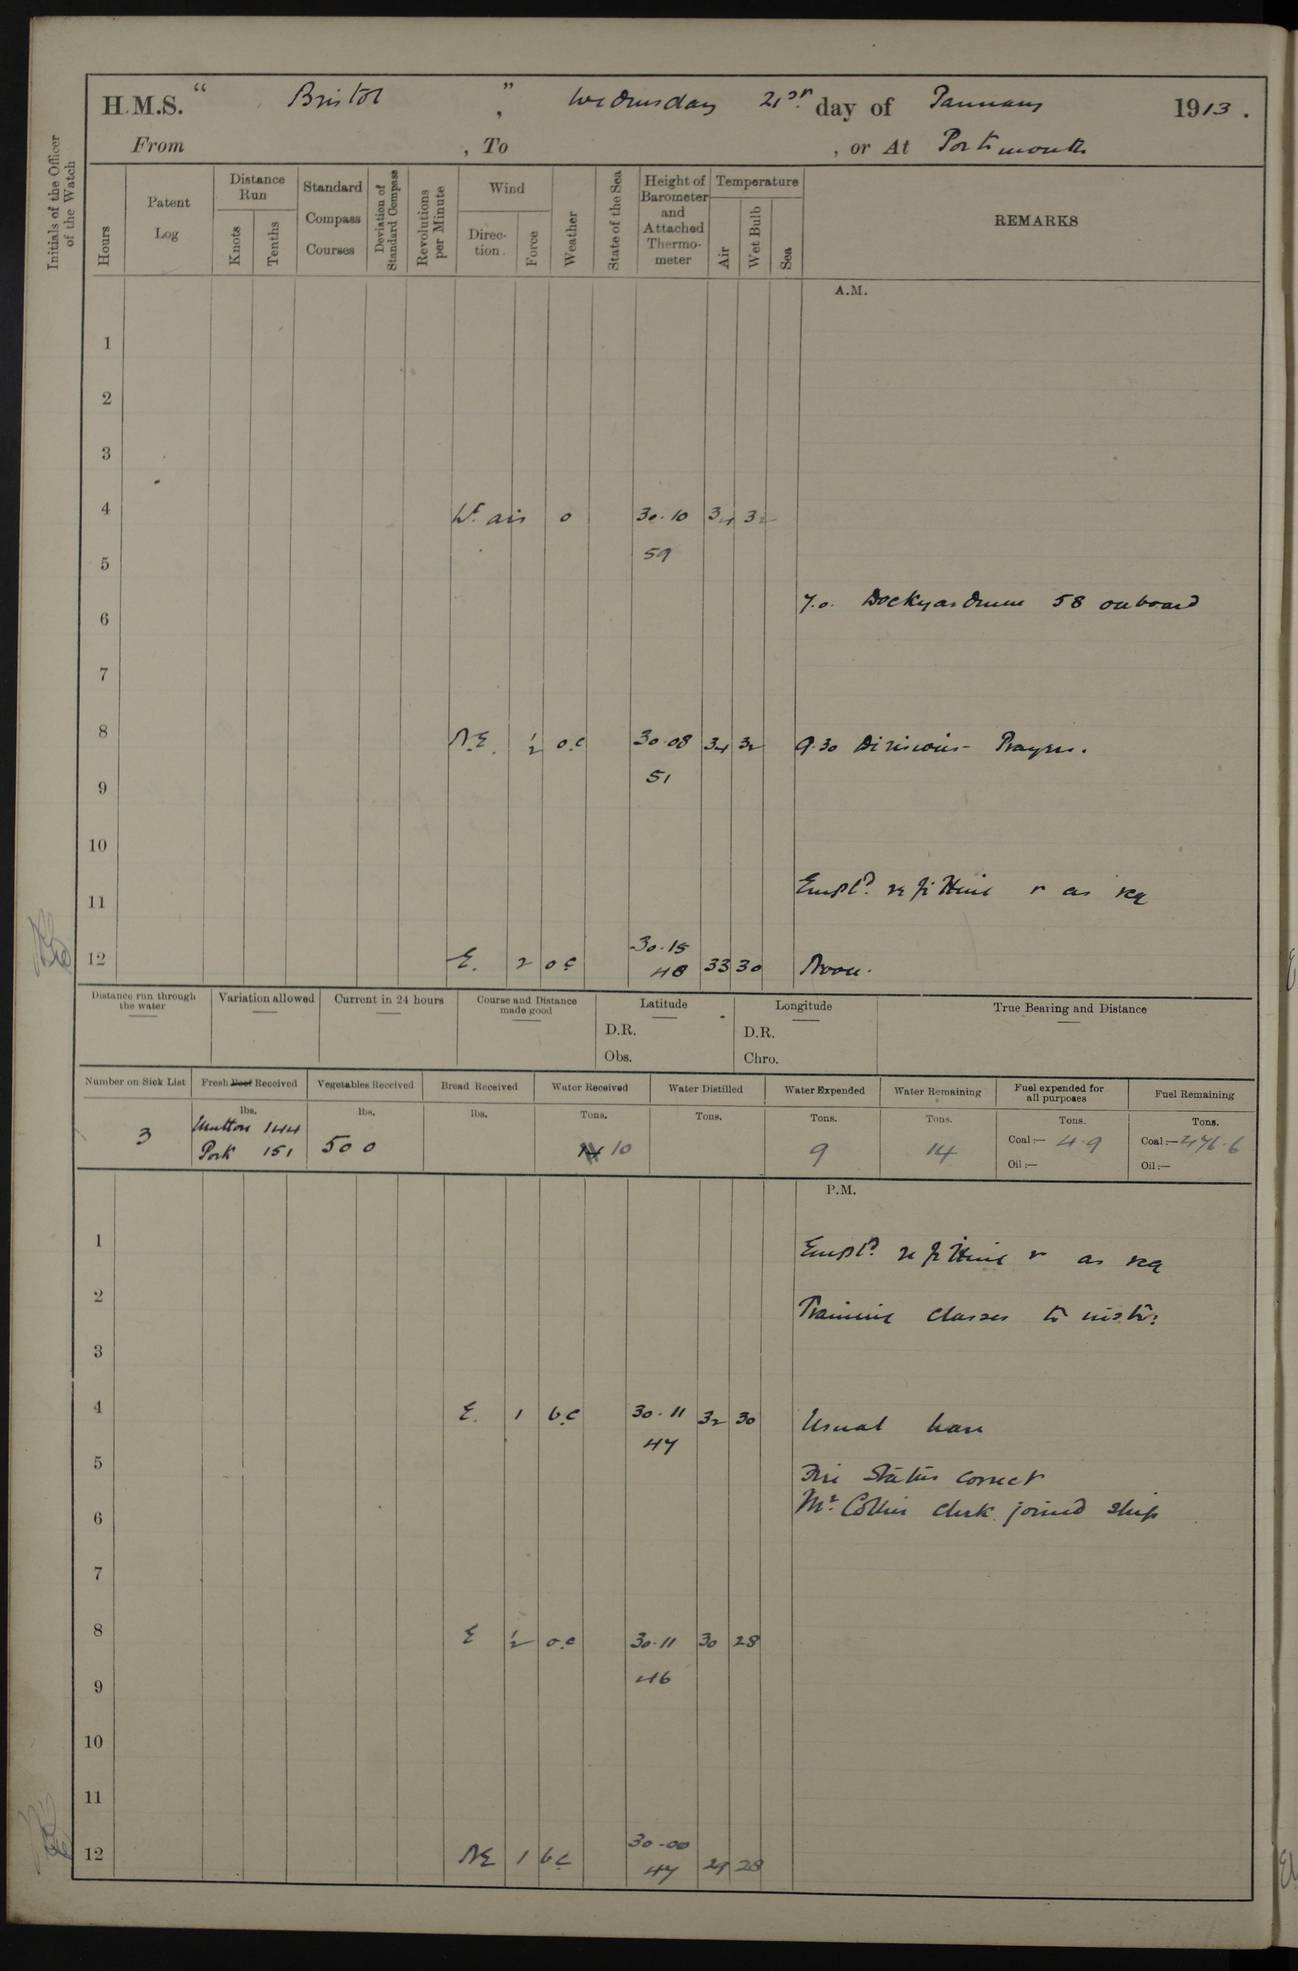 H.M.S. " Bristol " , Wednesday 21st day of January 1913 .
From , To , or At Portsmouth
Initials of the Officer of the Watch
Hours
Patent Log
Distance Run
Knots
Tenths
Standard Compass Courses
Deviation of Standard Compass
Revolutions per Minute
Wind
Direction.
Force
Weather
State of the Sea
Height of Barometer and Attached Thermometer
Temperature
Air
Wet Bulb
Sea
REMARKS
A.M.
1
2
3
4 Lt. air o 30.10 34 32
59
5
7.0. Dockyardmen 58 onboard
6
7
8 N.E. 1/2 o.c 30.08 34 32 9.30 Divisions - Prayers.
51
9
10
Empld. refitting & as req
11
30.15
12 E. 2 o c 48 33 30 Noon.
Distance run through the water
Variation allowed
Current in 24 hours
Course and Distance made good
Latitude
D.R.
Obs.
Longitude
D.R.
Chro.
True Bearing and Distance
Number on Sick List
3
Fresh Beef Received
lbs.
Mutton 144
Pork 151
Vegetables Received
lbs.
500
Bread Received
lbs.
Water Received
Tons.
10
Water Distilled
Tons.
Water Expended
Tons.
9
Water Remaining
Tons.
14
Fuel expended for all purposes
Tons.
Coal:— 4.9
Oil:—
Fuel Remaining
Tons.
Coal:— 476.6
Oil:—
P.M.
1 Empld. refitting & as req
2 Training classes to instn:
3
4 E. 1 b.c 30.11 32 30 Usual leave
47
5 Fire Statns correct
6 Mr. Collier clerk joined ship
7
8 E 1/2 o.c 30.11 30 28
46
9
10
11
30.00
12 NE 1 b c 47 29 28